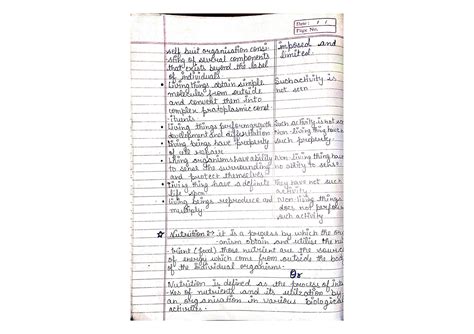 Date: / /
Page No.
self built organisation consi- imposed and
sting of several components limited.
that exists beyond the label
of individuals
• Living things obtain simple Such activity is
molecules from outside not seen
and convert them into
complex protoplasmic const-
ituents.
• Living things perform growth Such activity is not
development and Non-living thing have
• Living beings have property such property
of
• Living organisms have ability Non-living thing have
to sense the surrounding no ability to sense
and protect themselves
• Living thing have a definite They have not such
life span activity
• Living beings reproduce and Non-living things
multiply does not
such activity
☆ Nutrition :- it is a process by which the
obtain and utilise the
(food) those nutrient are the source
of energy which come from outside the
of the individual organisms.
Or
Nutrition is defined as the process of
of nutrients and its utilization by
an, organisation in various biological
activities.